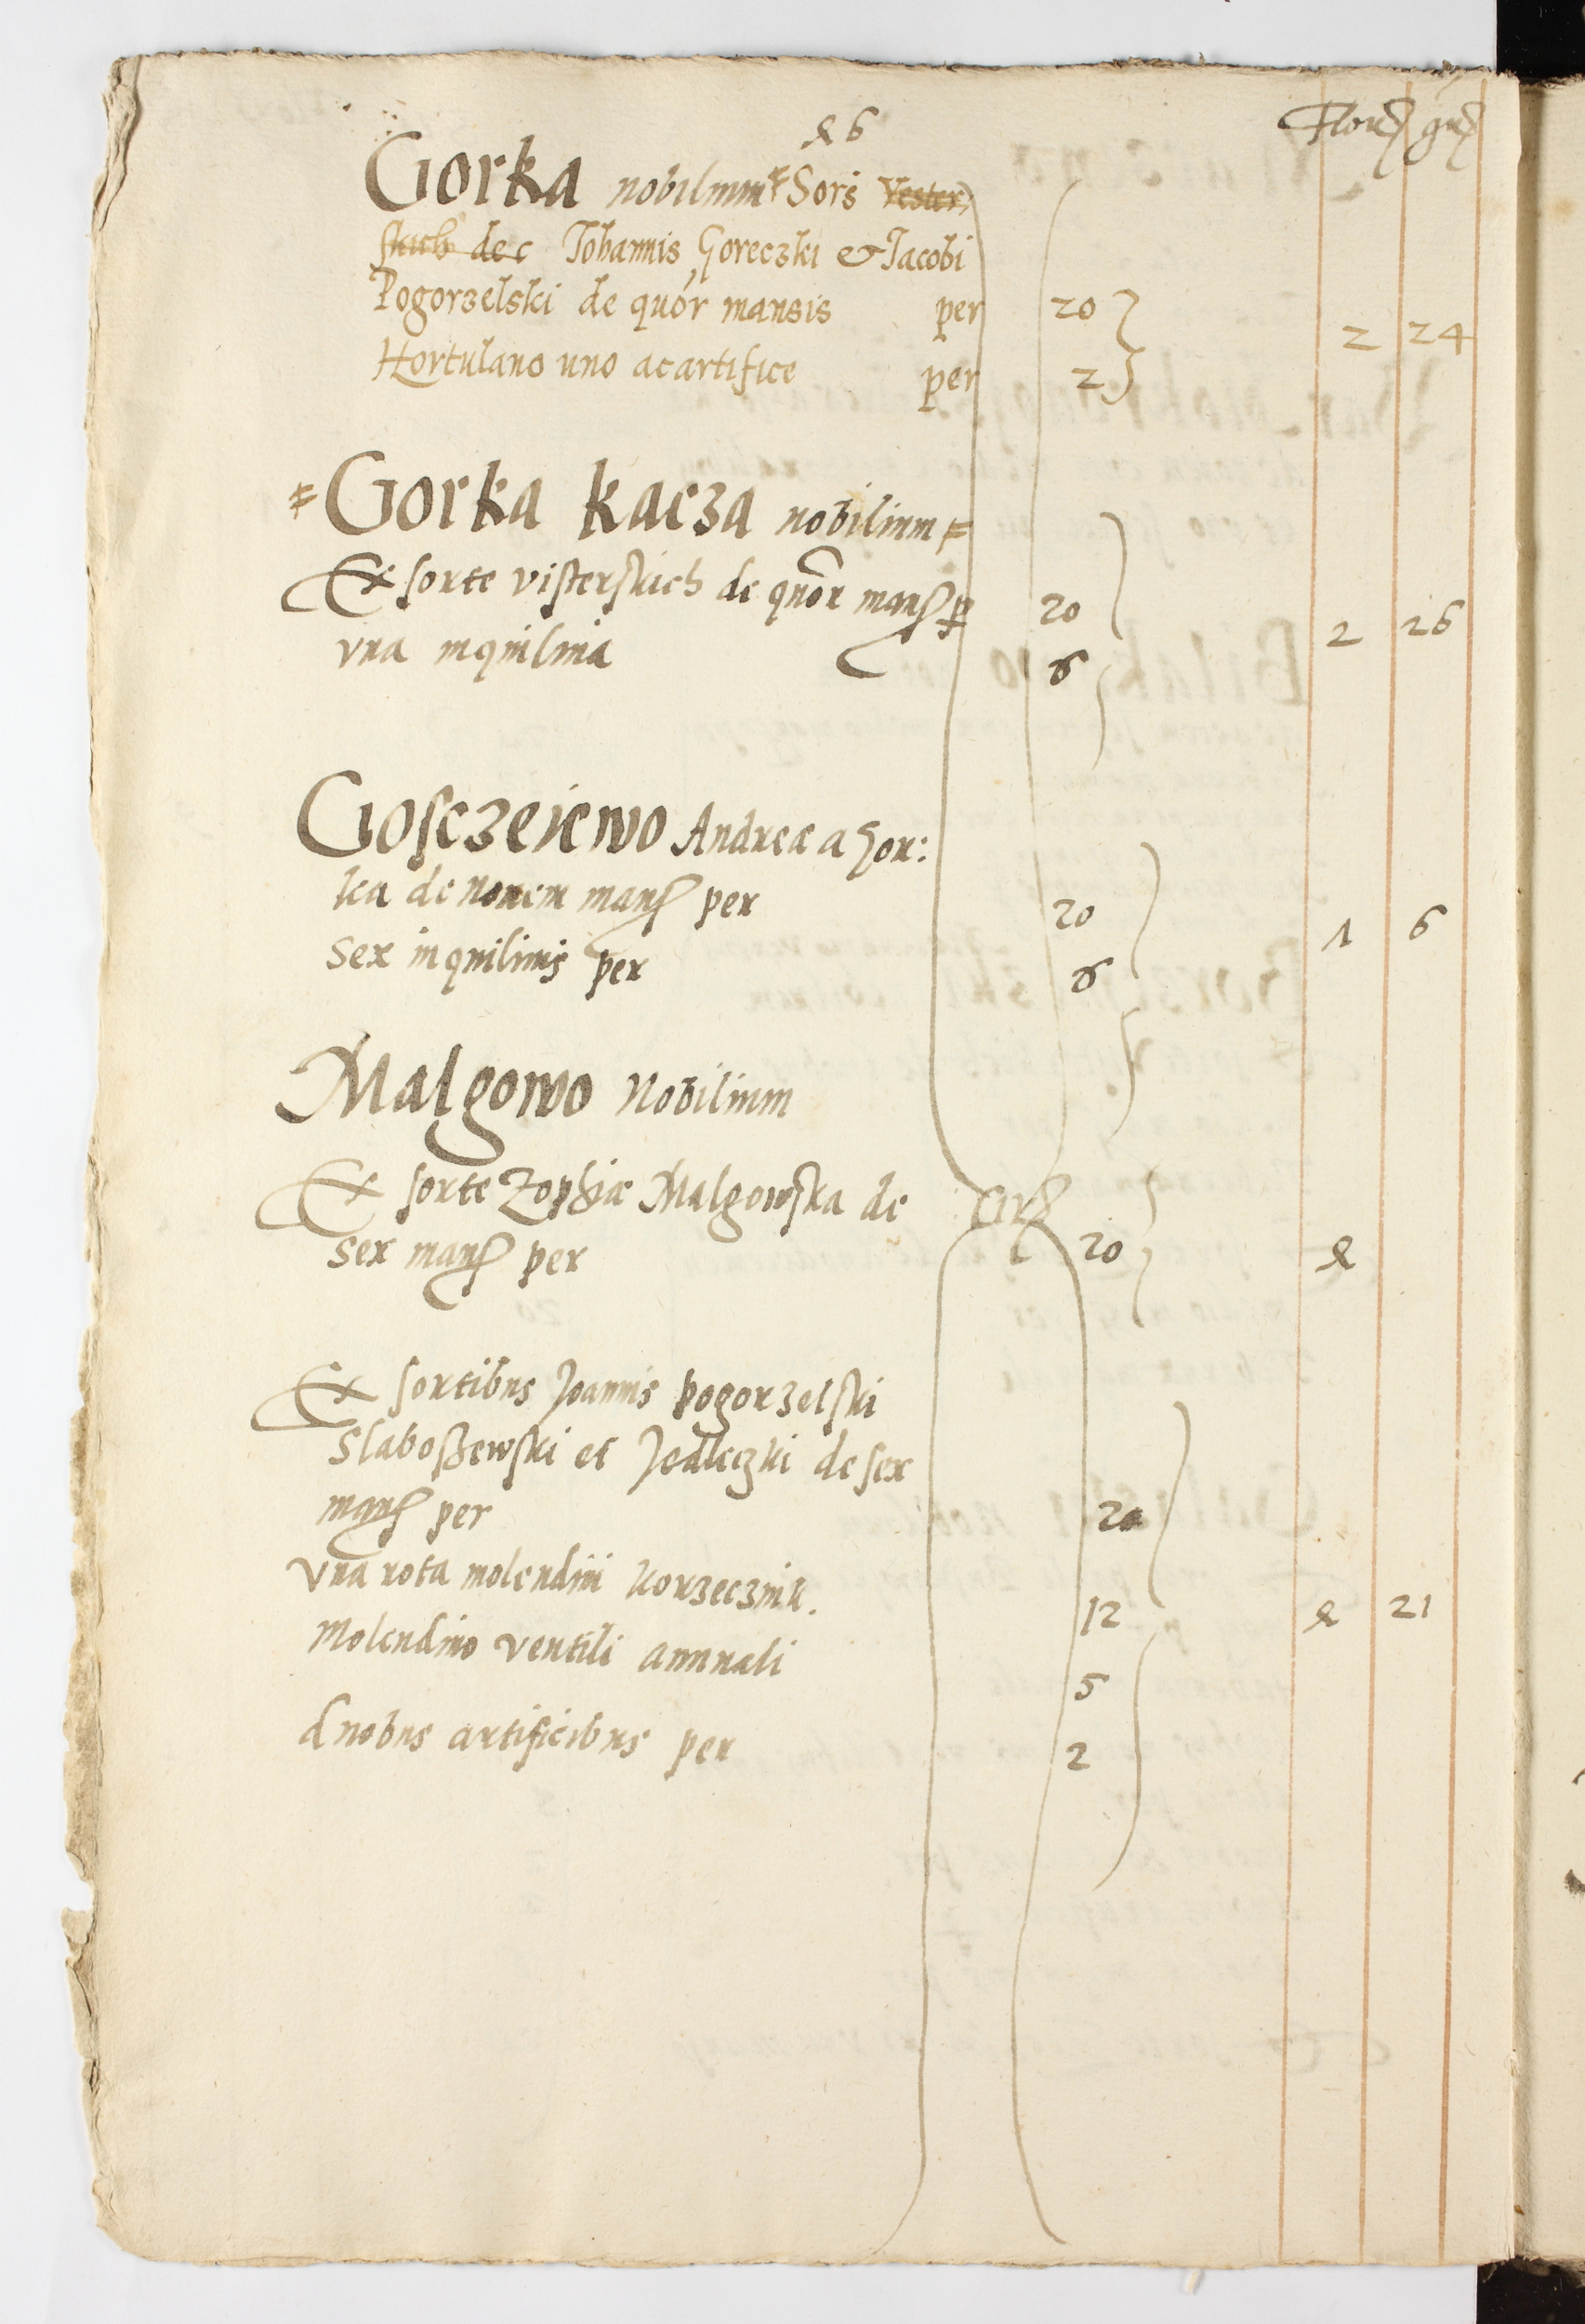 Floren gr
& 6
Gorka nobilium Sors Vester,
skich de c Johannis Goreczki & Jacobi
Pogorzelski de quór mansis per 20
2 24
Hortulano uno ac artifice per 2
Gorka kacza nobilium
Ex sorte visterskich de quor mans per 20
2 26
vna inquilina 6
Gosczeiewo Andreæ a Gor:
ka de nouem mans per 20
1 6
Sex inquilinis per 6
Malgowo Nobilium
Ex sorte Zophiæ Malgowska de
sex mans per 20 &
Ex sortibus Joannis pogorzelski
Slaboszewski et Jedleczki de sex
mans per 20
Vna rota molendini korzecznik. 12 & 21
Molendino ventili annuali 5
duobus artificibus per 2